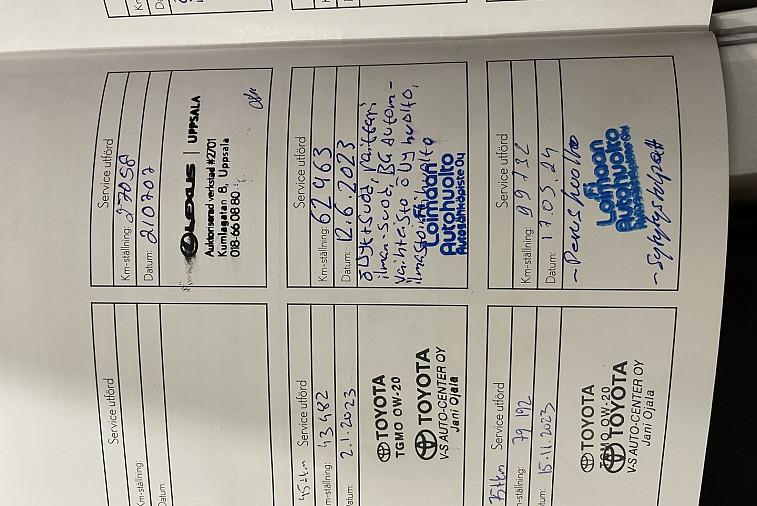 Service utförd
Km-ställning: 27058
Datum: 210707
LEXUS | UPPSALA
Auktoriserad verkstad #2701
Kumlagatan 8, Uppsala
018-66 08 80
Service utförd
Km-ställning:
Datum:
Service utförd
Km-ställning: 62 463
Datum: 12.6.2023
öljyt+suod, raitteri
ilman-suod, BG autom-
vaihteisto öljy huolto,
ilmastointihuolto
Loimaan
Autohuolto
Autonsähköpiste Oy
45tkm Service utförd
m-ställning: 43482
atum: 2.1.2023
TOYOTA
TGMO OW-20
TOYOTA
V-S AUTO-CENTER OY
Jani Ojala
Service utförd
Km-ställning: 99132
Datum: 17.05.24
~Perushuolto
Loimaan
Autohuolto
Autonsähköpiste Oy
75tkm Service utförd
n-ställning: 79 192
tum: 15.11.2023
TOYOTA
TGMO OW-20
TOYOTA
V-S AUTO-CENTER OY
Jani Ojala